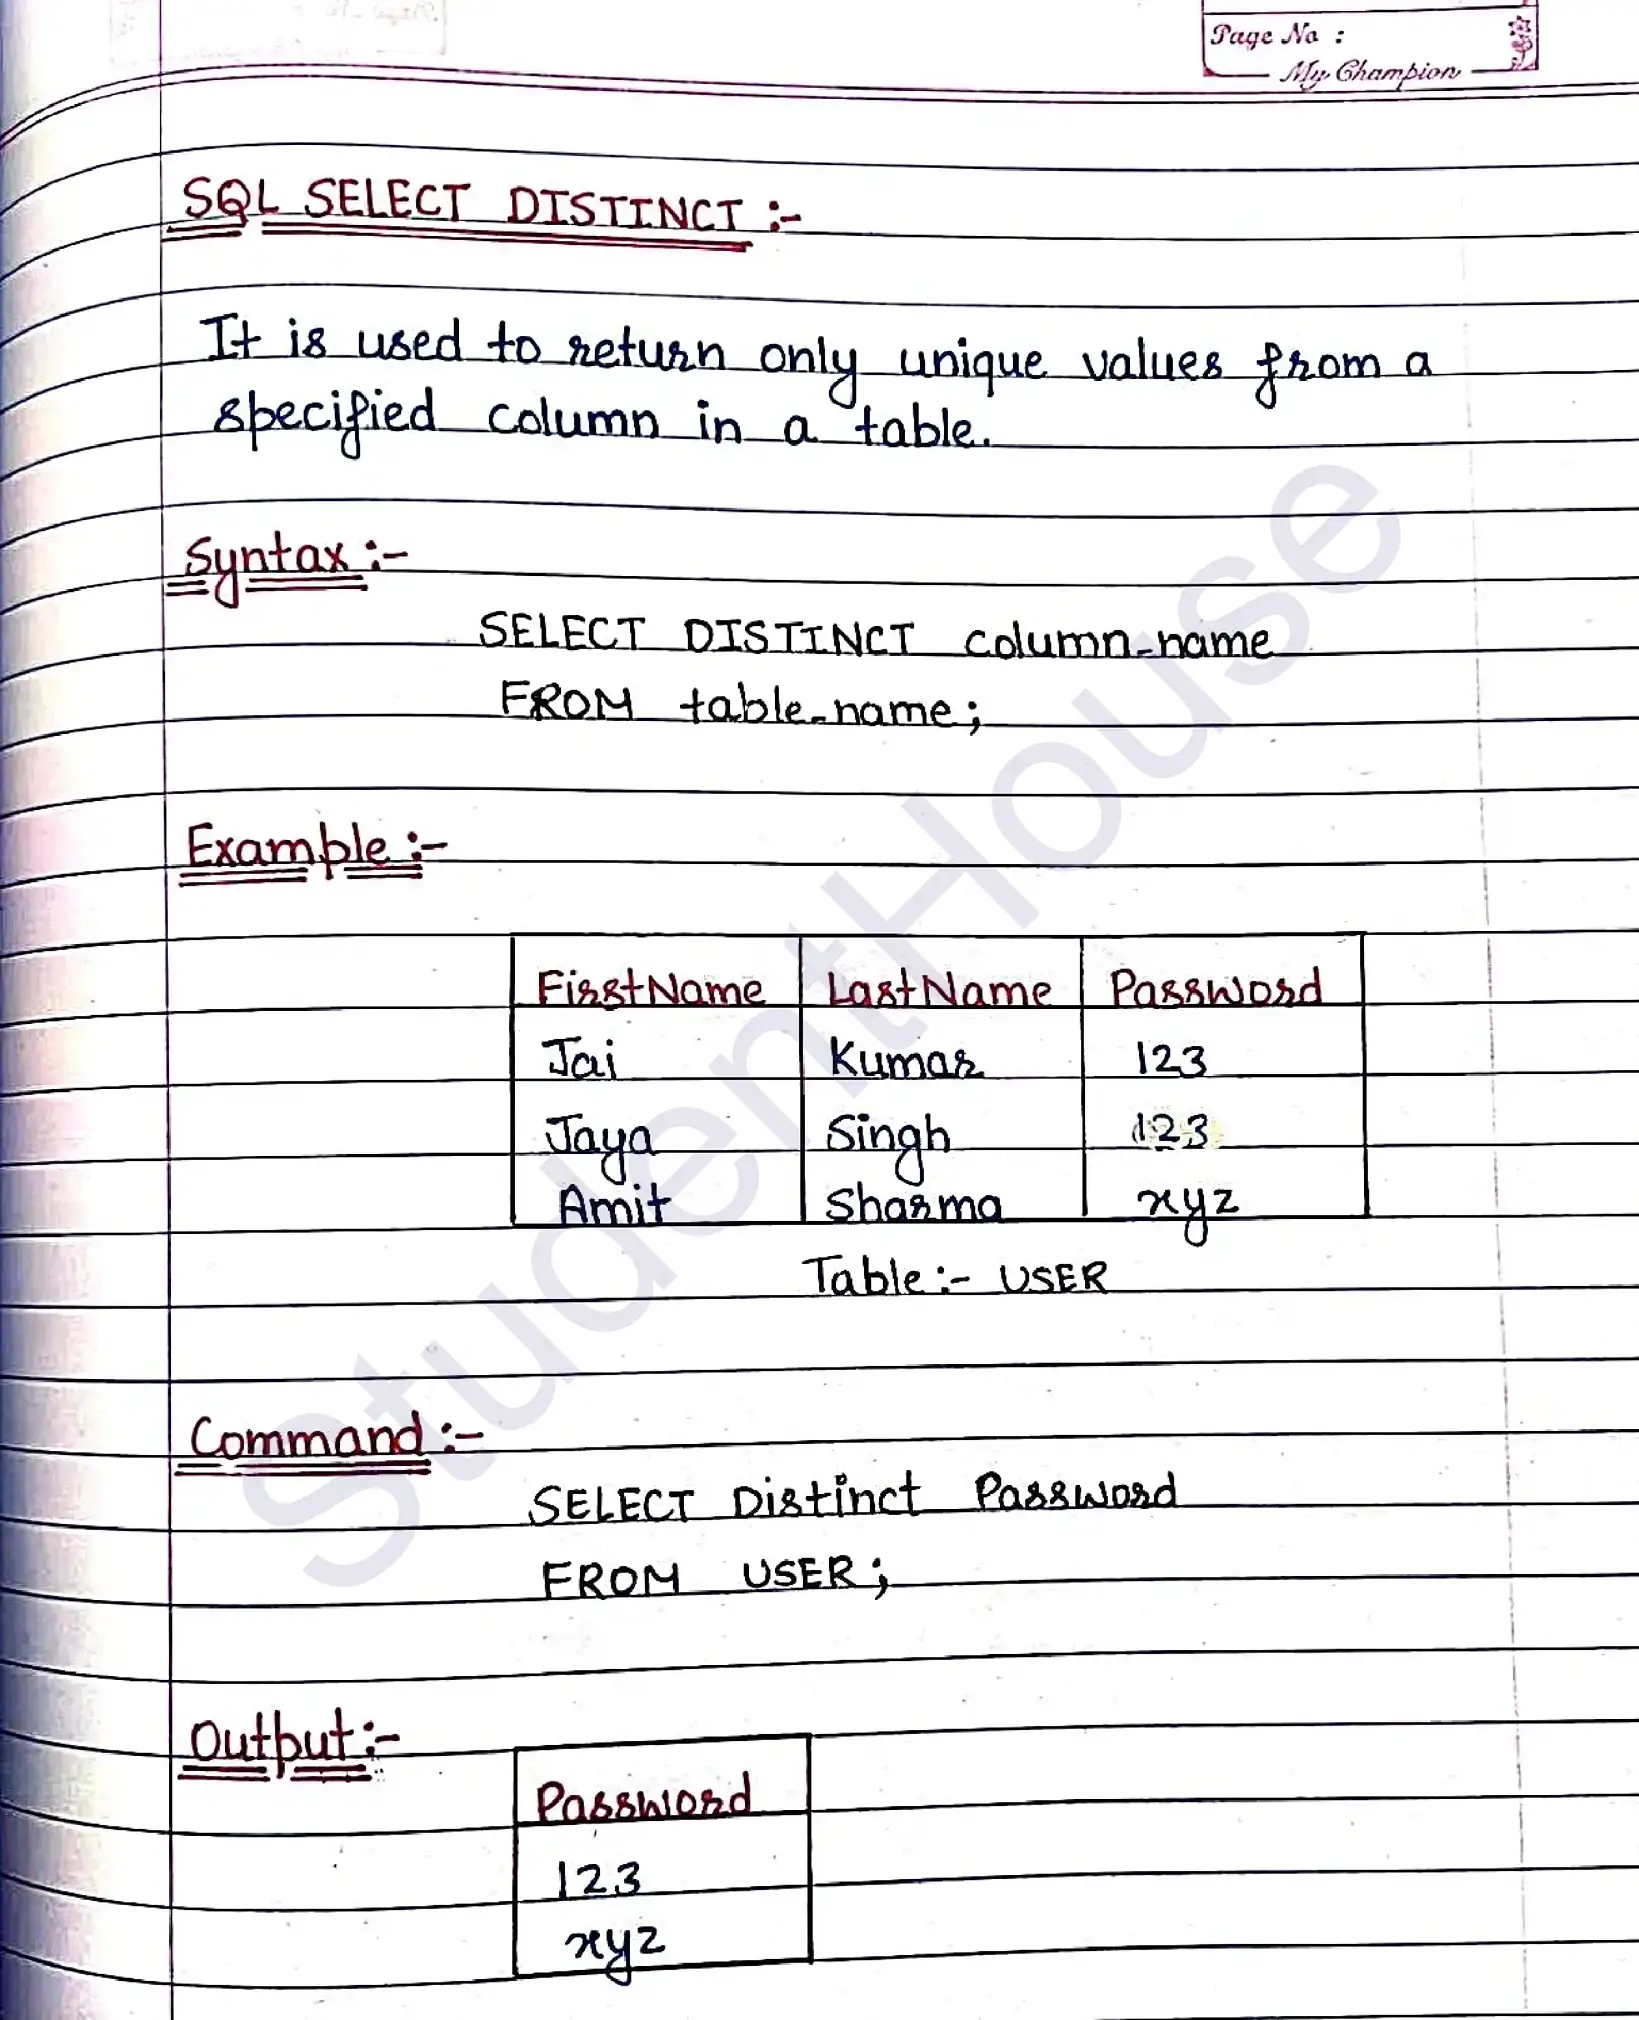 Page No :
My Champion
SQL SELECT DISTINCT :-
It is used to return only unique values from a
specified column in a table.
Syntax :-
SELECT DISTINCT column_name
FROM table_name;
Example :-
FirstName LastName Password
Jai Kumar 123
Jaya Singh 123
Amit Sharma xyz
Table :- USER
Command :-
SELECT Distinct Password
FROM USER;
Output :-
Password
123
xyz
StudentHouse